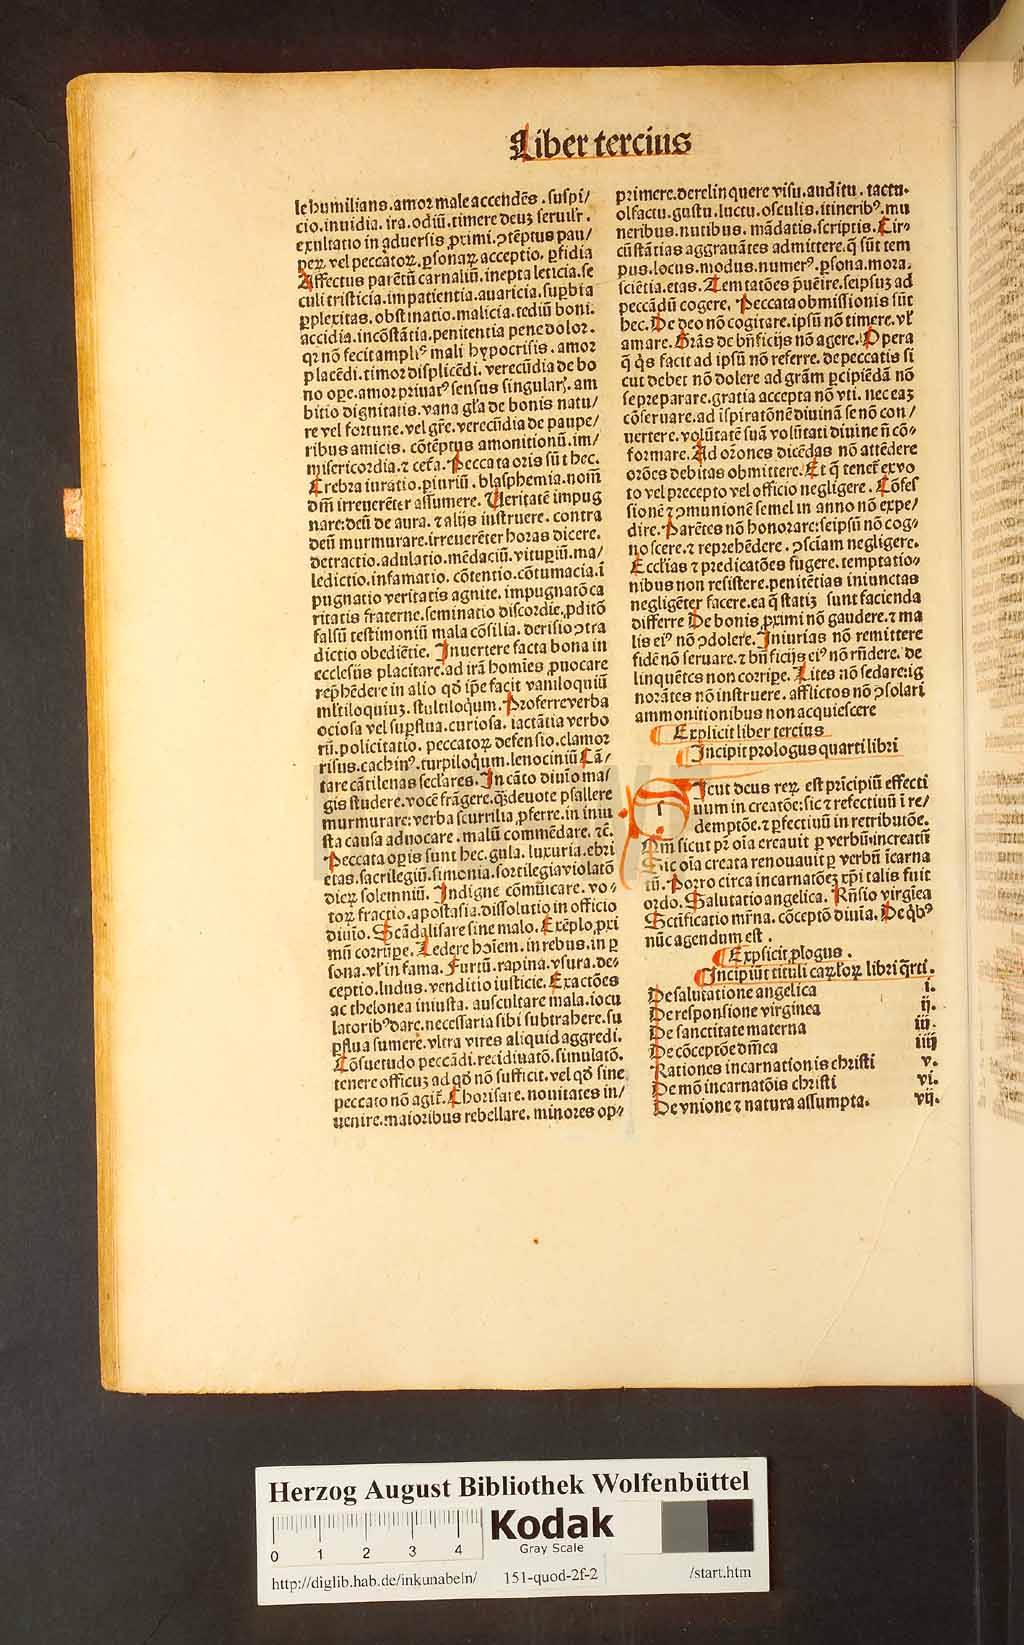 Liber tercius
le humilians. amor male accendēs. suspi/
cio. inuidia. ira. odiū. timere deuȝ seruilr̄.
exultatio in aduersis ꝓximi. ꝯtēptus pau/
peꝝ. vel peccatoꝝ. ꝑsonaꝝ acceptio. ꝑfidia
Affectus parētū carnaliū. inepta leticia. se
culi tristicia. impatientia. auaricia. suꝑbia
ꝑplexitas. obstinatio. malicia. tediū boni.
accidia. incōstātia. penitentia pene dolor.
qꝛ nō fecit ampliꝰ mali hypocrisis. amor
placēdi. timor displicēdi. verecūdia de bo
no oꝑe. amor priuatꝰ sensus singularꝭ. am
bitio dignitatis. vana gl̄a de bonis natu/
re vel fortune. vel gr̄e. verecūdia de paupe/
ribus amicis. cōtēptus amonitionū. im/
misericordia. ⁊ cet̄a. Peccata oris sūt hec.
Crebra iuratio. ꝑiuriū. blasphemia. nom̄
dn̄i irreuerēter assumere. Ueritatē impug
nare: deū de aura. ⁊ alijs instruere. contra
deū murmurare. irreuerēter horas dicere.
detractio. adulatio. mēdaciū. vituꝑiū. ma/
ledictio. infamatio. cōtentio. cōtumacia. ī
pugnatio veritatis agnite. impugnatō ca
ritatis fraterne. seminatio discordie. ꝓditō
falsū testimoniū mala cōsilia. derisio ꝯtra
dictio obediētie. Inuertere facta bona in
ecclesijs placitare. ad irā homīes ꝓuocare
rep̄hēdere in alio qd̄ ip̄e facit vaniloquiū
ml̄tiloquiuȝ. stultiloq̇um. Proferre verba
ociosa vel suꝑflua. curiosa. iactātia verbo
rū. policitatio. peccatoꝝ defensio. clamor
risus. cachinꝰ. turpiloq̇um. lenociniū Cā/
tare cātilenas secl̄ares. In cāto diuīo ma/
gis studere. vocē frāgere. q̄ȝ deuote psallere
murmurare: verba scurrilia ꝓferre. in iniu
sta causa aduocare. malū commēdare. ⁊c̄.
Peccata oꝑis sunt hec. gula. luxuria. ebri
etas. sacrilegiū. simonia. sortilegia violatō
dieꝝ solemniū. Indigne cōmūicare. vo⸗
toꝝ fractio. apostasia. dissolutio in officio
diuīo. Scādalisare sine malo. Exēplo ꝓxi
mū corrūpe. Ledere hoīem. in rebus. in ꝑ
sona. vl̄ in fama. Furtū. rapina. vsura. de⸗
ceptio. ludus. venditio iusticie. Exactōes
ac thelonea iniusta. auscultare mala. iocu
latoribꝰ dare. necessaria sibi subtrahere. su
ꝑflua sumere. vltra vires aliquid aggredi.
Cōsuetudo peccādi. recidiuatō. simulatō.
tenere officiuȝ ad qd̄ nō sufficit. vel qd̄ sine
peccato nō agit̄. Chorisare. nouitates in/
uenire. maioribus rebellare. minores op⸗
primere. derelinquere visu. auditu. tactu.
olfactu. gustu. luctu. osculis. itineribꝰ. mu
neribus. nutibus. mādatis. scriptis. Cir⸗
cūstātias aggrauātes admittere. q̄ sūt tem
pus. locus. modus. numerꝰ. ꝑsona. mora.
sciētia. etas. Temtatōes p̄uēire. seipsuȝ ad
peccādū cogere. Peccata obmissionis sūt
hec. De deo nō cogitare. ipsū nō timere. vl̄
amare. Grās de bn̄ficijs nō agere. Opera
q̄ q̇s facit ad ipsū nō referre. de peccatis si
cut debet nō dolere ad grām ꝑcipiēdā nō
se preparare. gratia accepta nō vti. nec eaȝ
cōseruare. ad īspiratōnē diuinā se nō con/
uertere. volūtatē suā volūtati diuine ñ cō⸗
formare. Ad orōnes dicēdas nō attēdere
orōes debitas obmittere. Et q̄ tenet̄ ex vo
to vel precepto vel officio negligere. Cōfes
sionē ⁊ ꝯmunionē semel in anno nō expe/
dire. Parētes nō honorare: seipsū nō cog⸗
noscere. ⁊ reprehēdere. ꝯsciam negligere.
Eccl̄ias ⁊ predicatōes fugere. temptatio⸗
nibus non resistere. penitētias iniunctas
negligēter facere. ea q̄ statiȝ sunt facienda
differre De bonis ꝓximi nō gaudere. ⁊ ma
lis eiꝰ nō ꝯdolere. Iniurias nō remittere
fidē nō seruare. ⁊ bn̄ficijs eiꝰ nō rn̄dere. de
linquētes non corriꝑe. Lites nō sedare: ig
norātes nō instruere. afflictos nō ꝯsolari
ammonitionibus non acquiescere
Explicit liber tercius
Incipit prologus quarti libri
Sicut deus reꝝ est prīcipiū effecti
uum in creatōe: sic ⁊ refectiuū ī re/
demptōe. ⁊ ꝑfectiuū in retributōe.
Nā sicut pr̄ oīa creauit ꝑ verbū increatū
Sic oīa creata renouauit ꝑ verbū īcarna
tū. Porro circa incarnatōeȝ xp̄i talis fuit
ordo. Salutatio angelica. Rn̄sio virgīea
Sctificatio mr̄na. cōceptō diuīa. De q̇bꝰ
nūc agendum est.
Explicit ꝓlogus.
Incipiūt tituli cap̄l̄oꝝ libri q̄rti.
De salutatione angelica i.
De responsione virginea ij.
De sanctitate materna iij.
De cōceptōe dn̄ica iiij
Rationes incarnationis christi v.
De mō incarnatōis christi vi.
De vnione ⁊ natura assumpta. vij.
Herzog August Bibliothek Wolfenbüttel
Kodak
Gray Scale
0 1 2 3 4
http://diglib.hab.de/inkunabeln/ 151-quod-2f-2 /start.htm